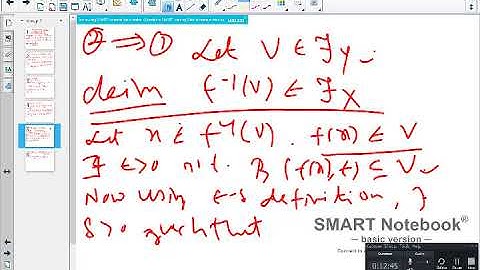 ② ⟹ ① Let V ∈ ℑ_Y.
claim f⁻¹(V) ∈ ℑ_X
Let x ∈ f⁻¹(V). f(x) ∈ V
∃ ε>0 s.t. B(f(x),ε) ⊆ V.
Now using ε-δ definition, ∃
δ>0 such that
SMART Notebook®
— basic version —
00:12:45